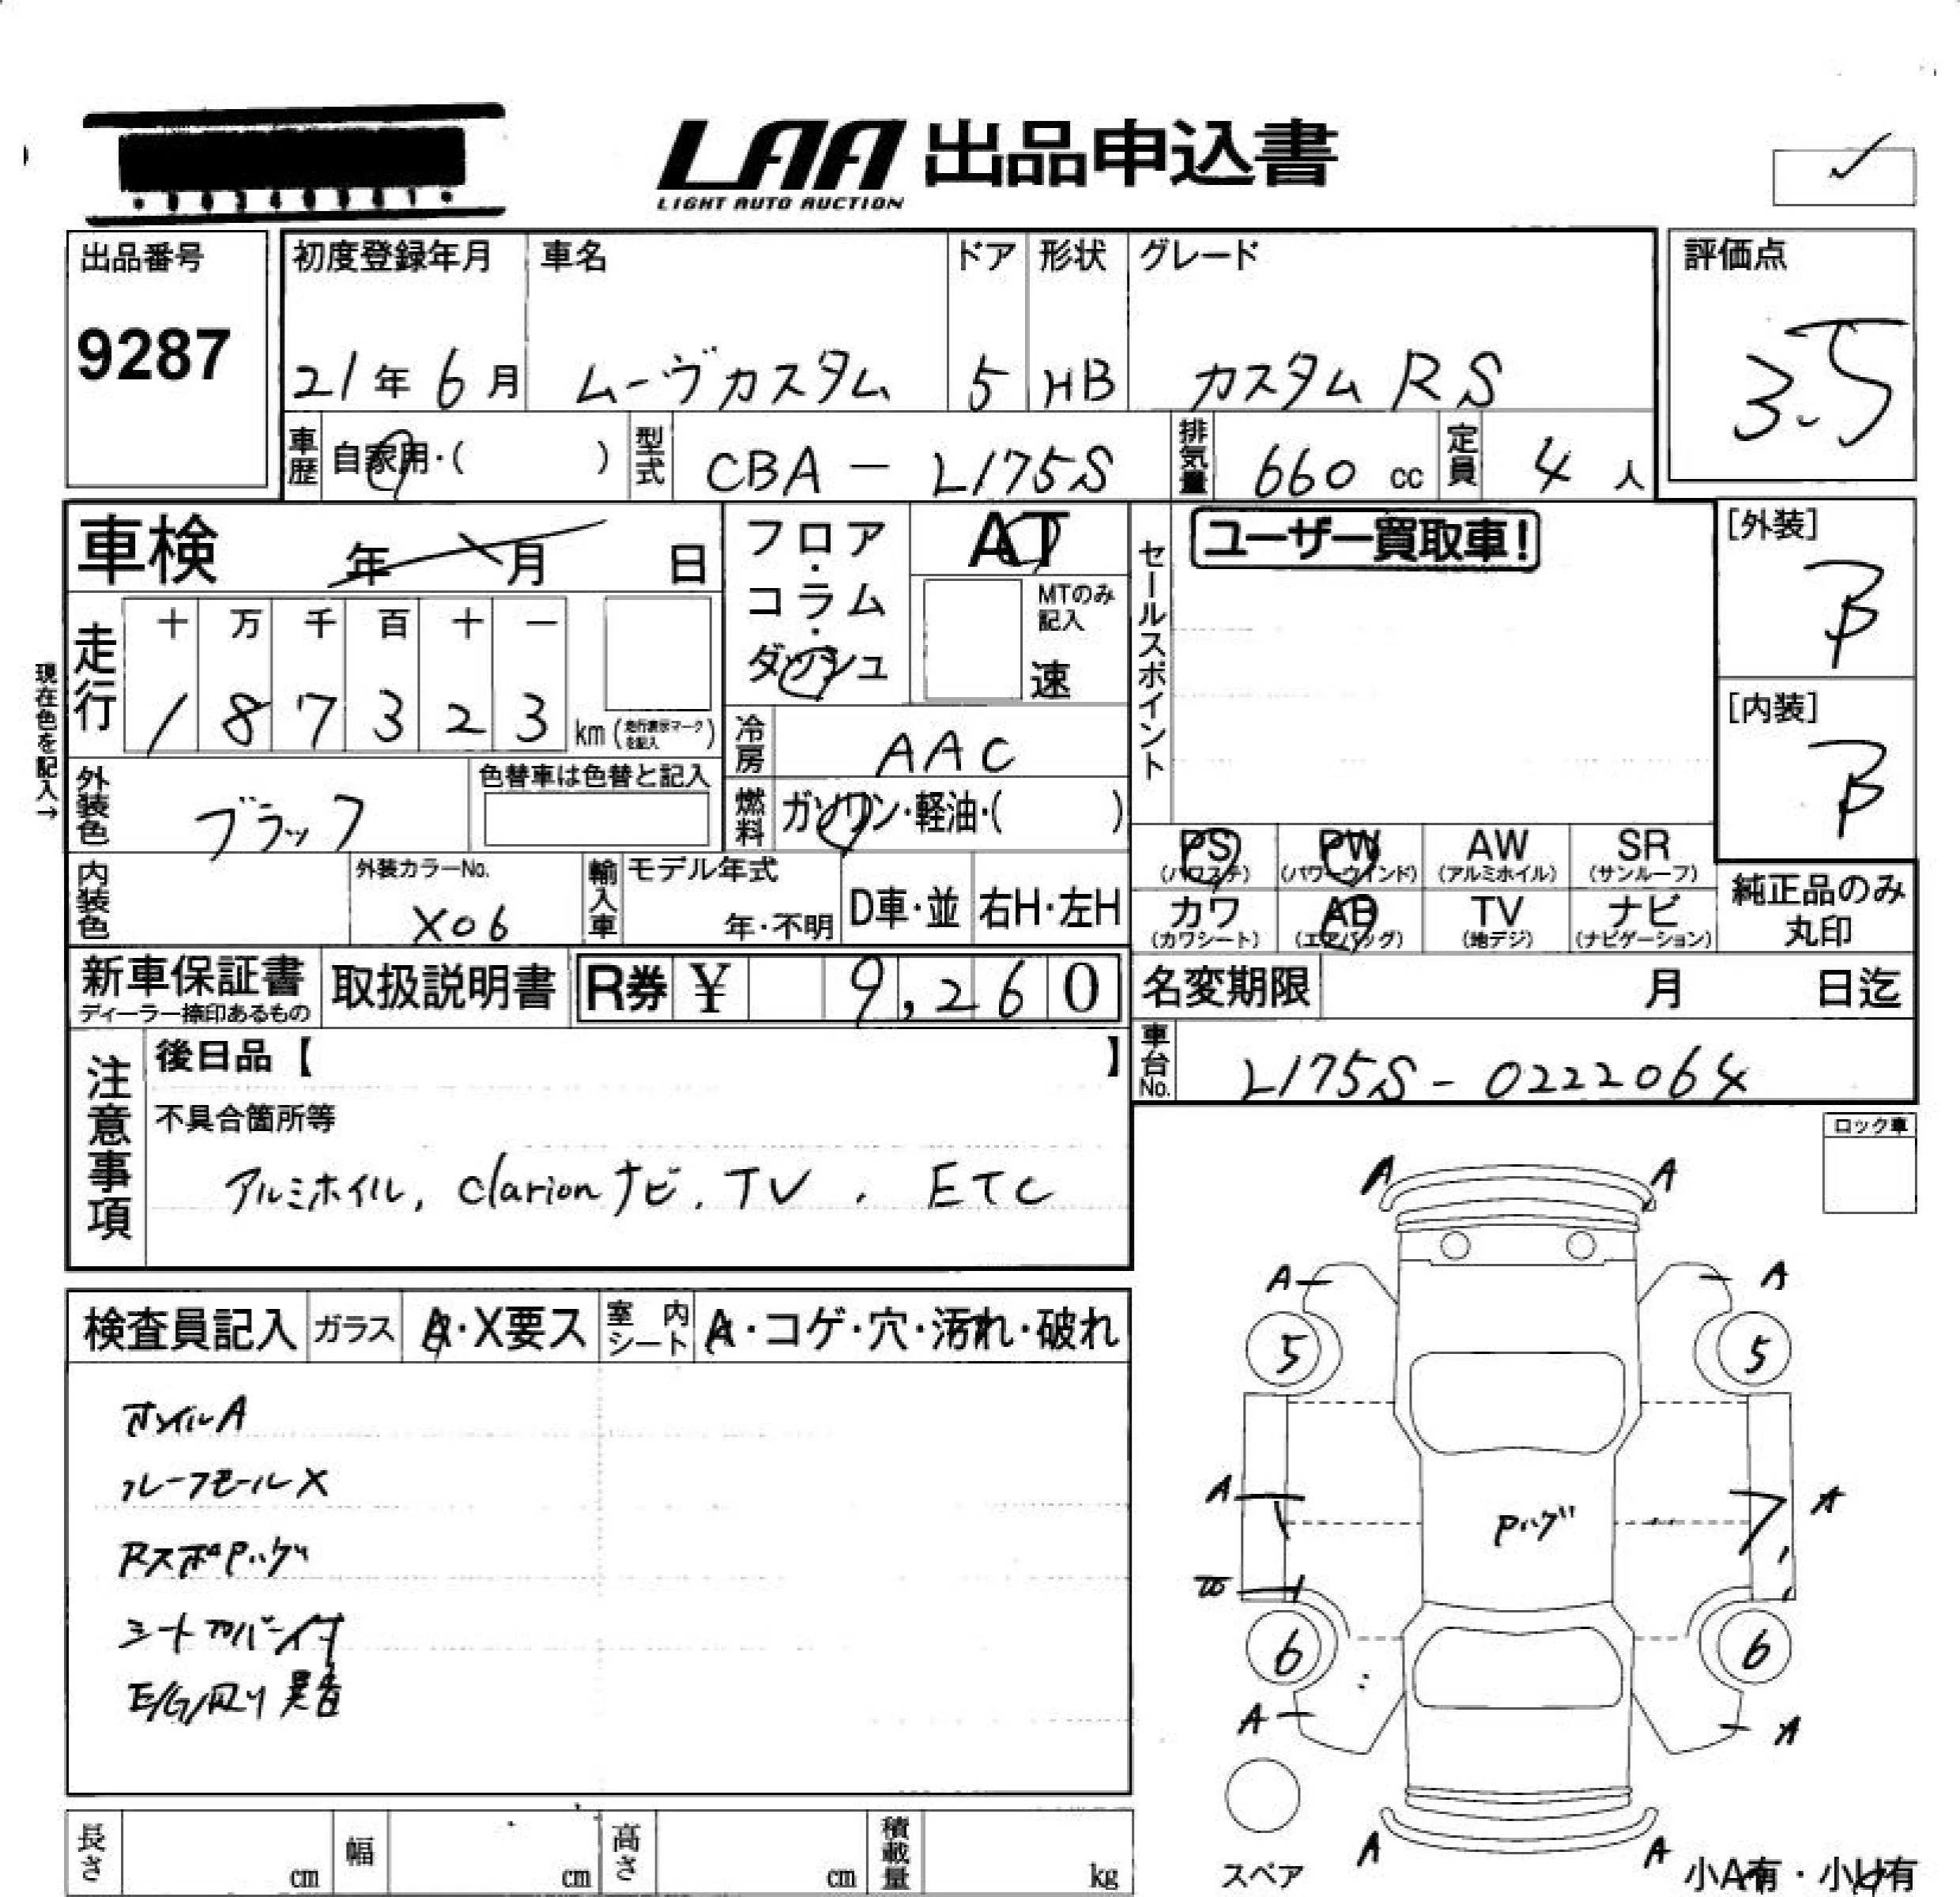 LAA 出品申込書
LIGHT AUTO AUCTION
出品番号
9287
初度登録年月 車名 ドア 形状 グレード
21年 6月 ムーヴカスタム 5 HB カスタム RS
評価点
3.5
車歴 自家用・( ) 型式 CBA - L175S 排気量 660 cc 定員 4 人
車検 年 月 日
フロア・コラム・ダッシュ
AT
MTのみ記入
速
セールスポイント
ユーザー買取車!
[外装]
B
[内装]
B
現在色を記入→
走行 十 万 千 百 十 一
1 8 7 3 2 3 km (走行表示マークを記入)
冷房 AAC
外装色 ブラック 色替車は色替と記入
燃料 ガソリン・軽油・( )
PS (パワステ) PW (パワーウインド) AW (アルミホイル) SR (サンルーフ)
カワ (カワシート) AB (エアバッグ) TV (地デジ) ナビ (ナビゲーション)
純正品のみ丸印
内装色 外装カラーNo. X06 輸入車 モデル年式 年・不明 D車・並 右H・左H
新車保証書 ディーラー捺印あるもの 取扱説明書 R券 ¥ 9,260
名変期限 月 日迄
車台No. L175S - 0222064
注意事項
後日品【 】
不具合箇所等
アルミホイル, clarion ナビ, TV, ETC
ロック車
検査員記入 ガラス A・X要ス 室内シート A・コゲ・穴・汚れ・破れ
ルーフモールX
RスポPハゲ
シートカバー付
E/G/周り異音
A A
A A
5 5
A A
Pハゲ
6 6
A A
A A
スペア
小A有・小U有
長さ cm 幅 cm 高さ cm 積載量 kg